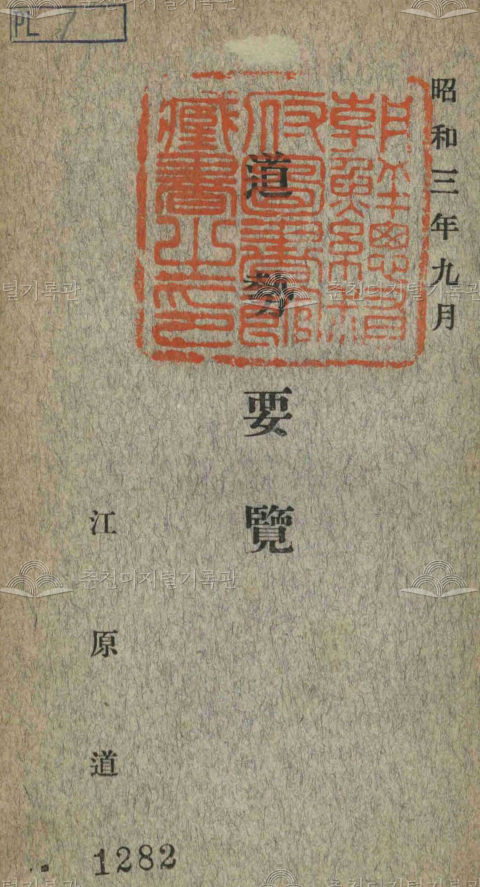 PL 7
昭和三年九月
道勢要覽
江原道
朝鮮總督
府圖書館
藏書之印
1282
춘천디지털기록관